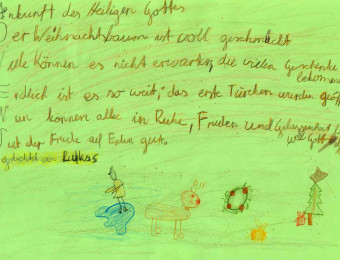 Ankunft des Heiligen Gottes
Der Weihnachtsbaum ist voll geschmückt
Viele Können es nicht erwarten, die vielen Geschenke
bekomme
Endlich ist es so weit, das erste Türchen wurden geöff
Nun können alle in Ruhe, Frieden und Gelassenheit
wie Gott
Tut der Friede auf Erden gut.
gedichtet von